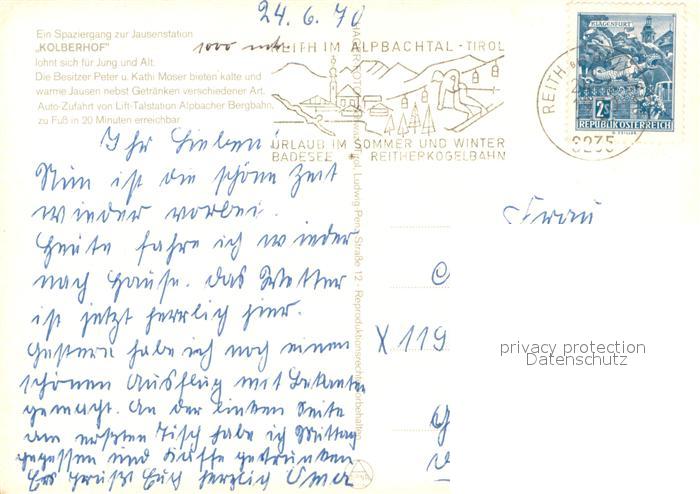 24.6.70
Ein Spaziergang zur Jausenstation
„KOLBERHOF"
1000 mtr
lohnt sich für Jung und Alt.
Die Besitzer Peter u. Kathi Moser bieten kalte und
warme Jausen nebst Getränken verschiedener Art.
Auto-Zufahrt von Lift-Talstation Alpbacher Bergbahn,
zu Fuß in 20 Minuten erreichbar
REITH IM ALPBACHTAL - TIROL
URLAUB IM SOMMER UND WINTER
BADESEE * REITHERKOGELBAHN
REITH
6235
KLAGENFURT
2S
REPUBLIK ÖSTERREICH
Ihr Lieben!
Nun ist die schöne Zeit
wieder vorbei.
Heute fahre ich wieder
nach Hause. Das Wetter
ist jetzt herrlich hier.
Gestern habe ich noch einen
schönen Ausflug mit Bekannten
gemacht. An der linken Seite
am ersten Tisch habe ich Mittag
gegessen und Kaffe getrunken
Es grüßt Euch herzlich Oma
Ludwig-Penz-Straße 12 - Reproduktionsrechte vorbehalten
Frau
X 119
privacy protection
Datenschutz